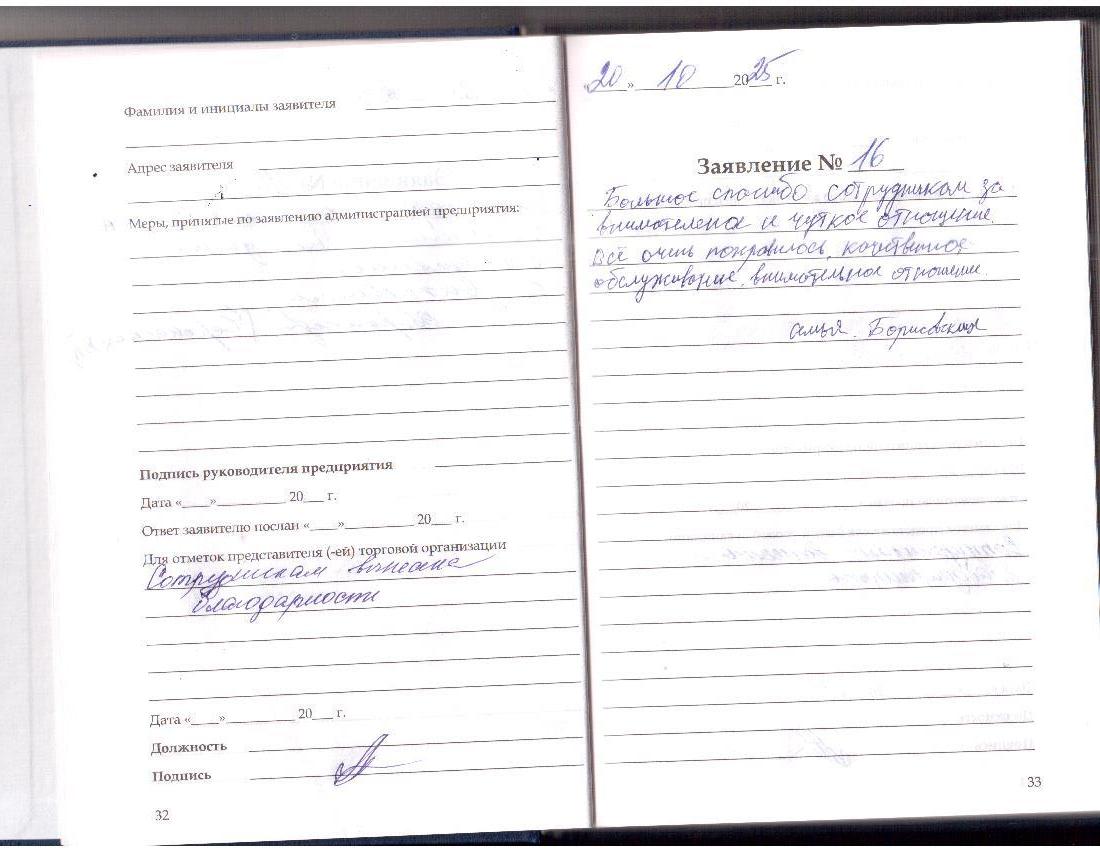 Фамилия и инициалы заявителя
Адрес заявителя
Меры, принятые по заявлению администрацией предприятия:
Подпись руководителя предприятия
Дата «____»__________ 20___ г.
Ответ заявителю послан «____»__________ 20___ г.
Для отметок представителя (-ей) торговой организации
Сотрудникам вынесена
благодарность
Дата «____»__________ 20___ г.
Должность
Подпись
32
20 » 10 2025 г.
Заявление № 16
Большое спасибо сотрудникам за
внимательное и чуткое отношение.
Всё очень понравилось, качественное
обслуживание, внимательное отношение.
семья Борисовская
33